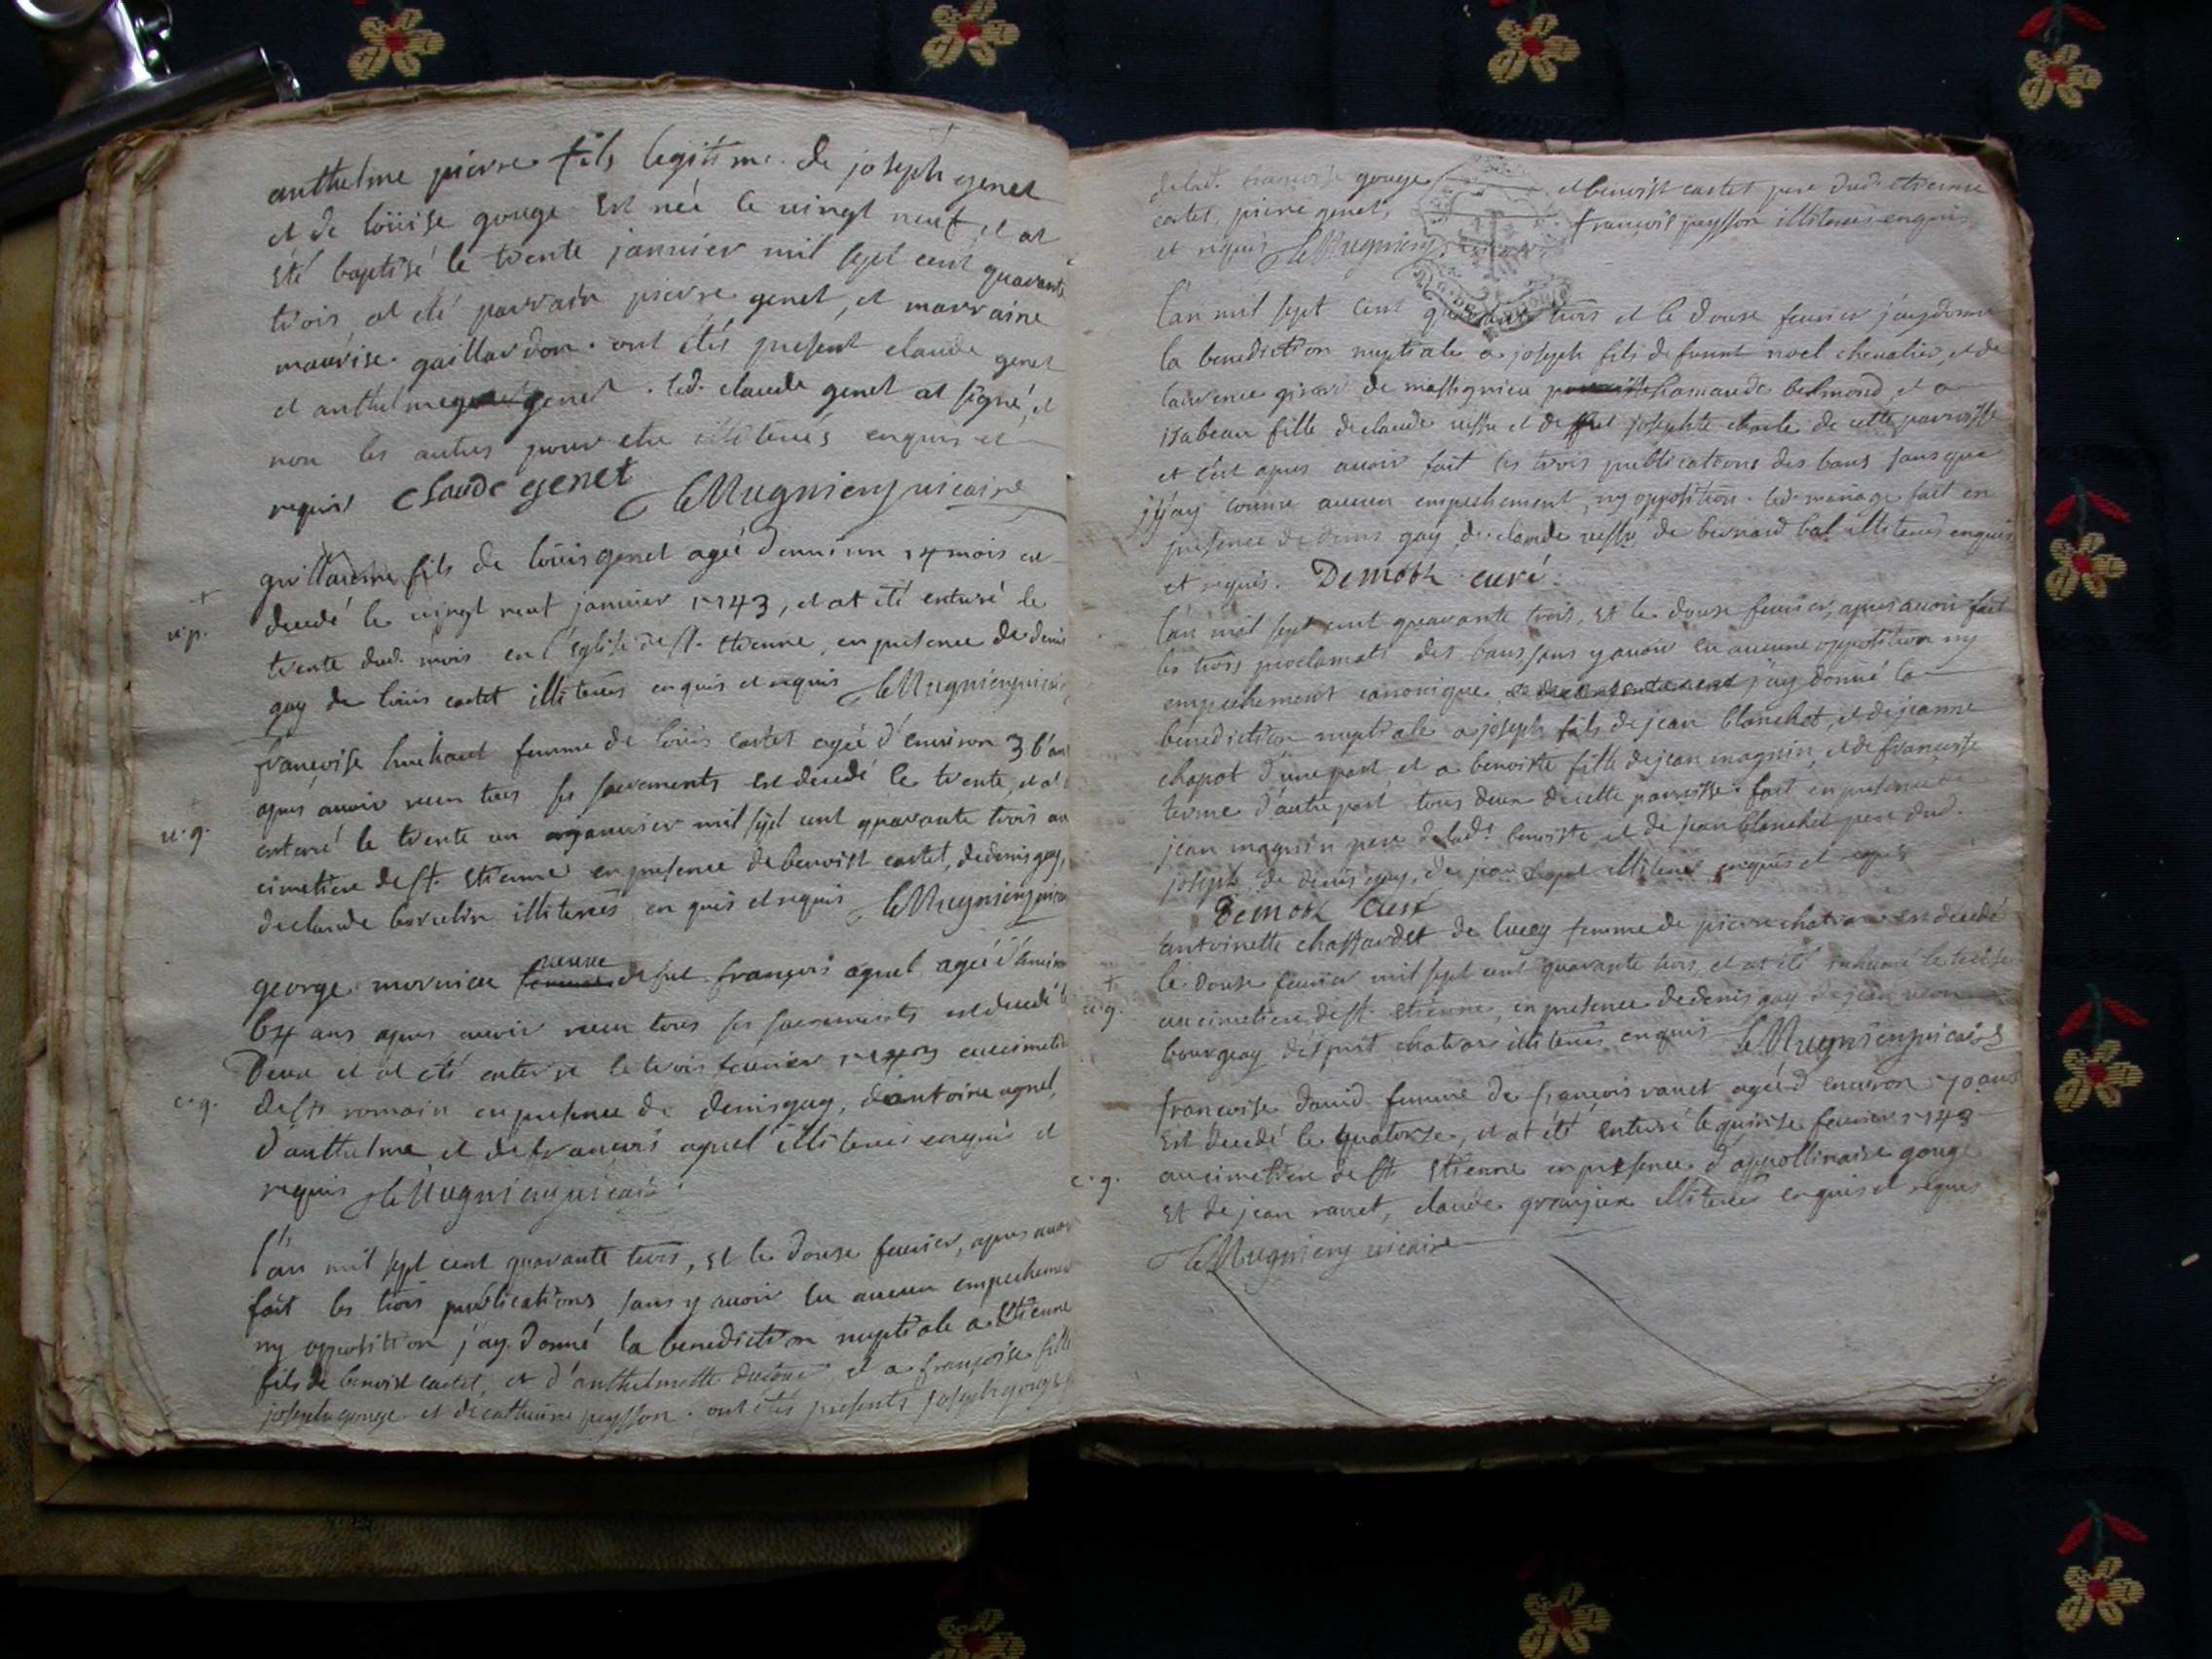 anthelme pierre fils legitime de joseph genet
et de loüise gouge est née le vingt neuf, et at
été baptisé le trente janvier mil sept cent quarante
trois at été parrain pierre genet, et marraine
maurise gaillardon. ont étés present claude genet
et anthelme genet. led. claude genet at signé, et
non les autres pour etre illiterés enquis et
requis claude genet leMugnieryvicaire
guillaume fils de loüis genet agé d'environ 14 mois est
decedé le vingt neuf janvier 1743, et at été enterré le
v.p.
trente dud. mois en l'eglise de st. etienne, en presence de denis
gay de loüis castet illiterés enquis et requis leMugnieryvicaire
françoise femme de loüis castet agée d'environ 36 ans
apres avoir receu tous ses sacrements est decedé le trente, et at
v.g.
enterré le trente un janvier mil sept cent quarante trois au
cimetiere de st. etienne en presence de benoist castet, de denis gay,
de claude borrelin illiterés enquis et requis leMugnieryvicaire
veuve
george mornieu femme de fut françois agnel agée d'environ
64 ans apres avoir receu tous ses sacrements est decedé le
deux et at été enterré le trois fevrier 1743 au cimetiere
c.g.
de st romain en presence de denis gay, d'antoine agnel,
d'anthelme et de françois agnel illiterés enquis et
requis leMugnieryvicaire
l'an mil sept cent quarante trois, et le douse fevrier, apres avoir
fait les trois publications, sans y avoir eu aucun empechement
ny opposition j'ay donné la benediction nuptiale a etienne
fils de benoist castet, et d'anthelmette et a françoise fille
joseph gouge et de catherine peysson. ont étés presents joseph gouge
delad. françoise gouge et benoist castet pere dud. etienne
castet, pierre genet, françois peysson illiterés enquis
et requis leMugniery
l'an mil sept cent quarante trois et le douse fevrier j'ay donné
la benediction nuptiale a joseph fils de funnt noel chevalier, et de
laurence girard de massignieu belmond, et a
isabeau fille de claude et de fut josephte de cette parroisse
et c'est apres avoir fait les trois publications des bans sans que
j'y ay connu aucun empechement, ny opposition. led. mariage fait en
presence de denis gay, de claude de bernard bal illiterés enquis
et requis. Demotz curé.
l'an mil sept cent quarante trois, et le douse fevrier, apres avoir fait
les trois proclamats des bans, sans y avoir eu aucune opposition ny
empechement canonique j'ay donné la
benediction nuptiale a joseph fils de jean blanchet, et de jeanne
chapot d'une part, et a benoiste fille de jean magnin, et de françoise
terme d'autre part tous deux de cette parroisse. fait en presence de
jean magnin pere de lad. benoiste, et de jean blanchet pere dud.
joseph, de denis gay, de jean chapot illiterés enquis et requis
Demotz Curé
antoinette chaffardet de lucey femme de pierre chatron est decedé
le douse fevrier mil sept cent quarante trois, et at été inhumé le treise
v.g.
au cimetiere de st. etienne, en presence de denis gay de jean
bourgeay illiterés enquis leMugnieryvicaire
françoise david femme de françois ravet agée d'environ 70 ans
est decedé le quatorse, et at été enterré le quinse fevrier 1743
c.g.
au cimetiere de st etienne en presence d'appollinaire gouge
et de jean ravet, claude granjux illiterés enquis et requis
leMugniery vicaire